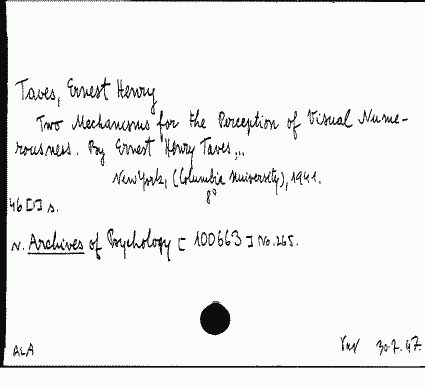 Taves, Ernest Henry
Two Mechanisms for the Perception of Visual Nume-
rousness. By Ernest Henry Taves,..
New York, (Columbia University), 1941.
8°
46 [1] s.
N. Archives of Psychology [100663] No. 265.
ALA
30.7.47.